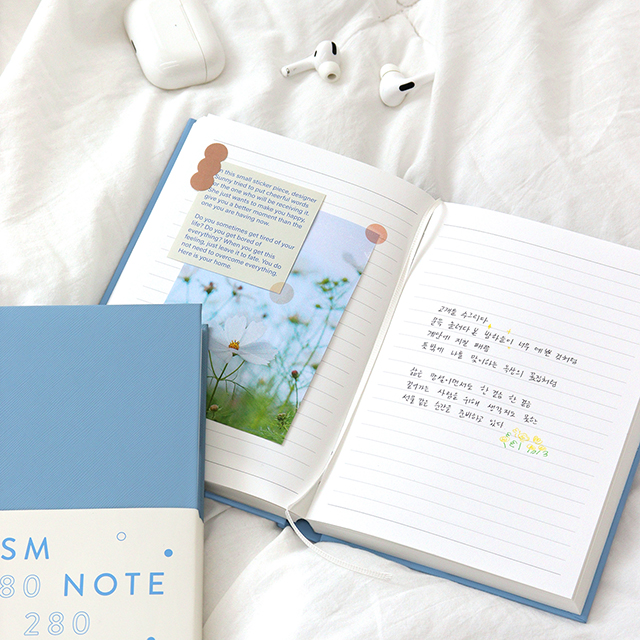 In this small sticker piece, designer
tried to put cheerful words
for the one who will be receiving it.
She just wants to make you happy,
give you a better moment than the
one you are having now.
Do you sometimes get tired of your
life? Do you get bored of
everything? When you get this
feeling, just leave it to fate. You do
not need to overcome everything.
Here is your home.
고개를 수그리다
문득 올려다 본 밤하늘이 너무 예쁜 것처럼
계단에 지칠 때쯤
등 뒤에 나를 밀어주는 옥상의 꽃길처럼
삶은 한 걸음 한 걸음
걸어가는 사람을 위해 생각지도 못한
선물 같은 순간을 준비하고 있다
SM
80 NOTE
280